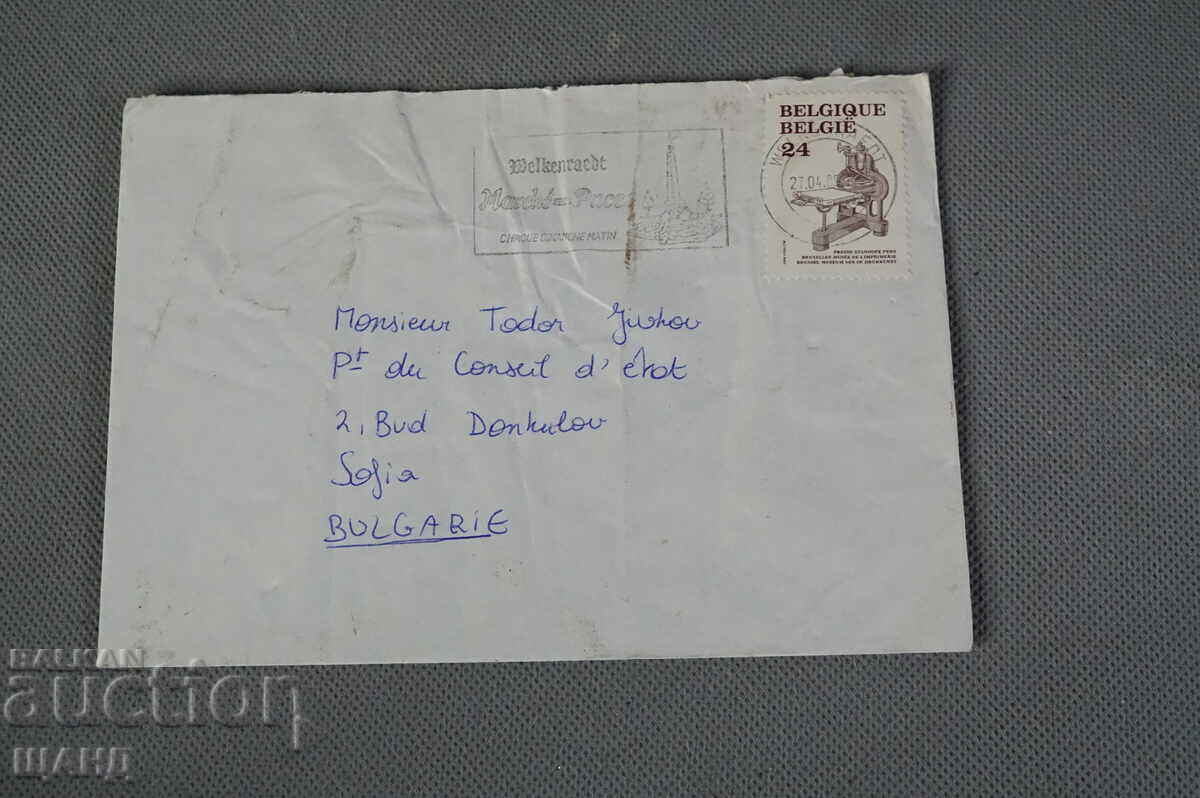 BELGIQUE
BELGIË
24
27.04.
Welkenraedt
Marché aux Puces
CHAQUE DIMANCHE MATIN
PRESSE STANHOPE PERS
BRUXELLES MUSÉE DE L'IMPRIMERIE
BRUSSEL MUSEUM VAN DE DRUKKUNST
Monsieur Todor Jivkov
Pt du Conseil d'état
2, Bud Donkulov
Sofia
BULGARIE
BALKAN
auction
ШАНД